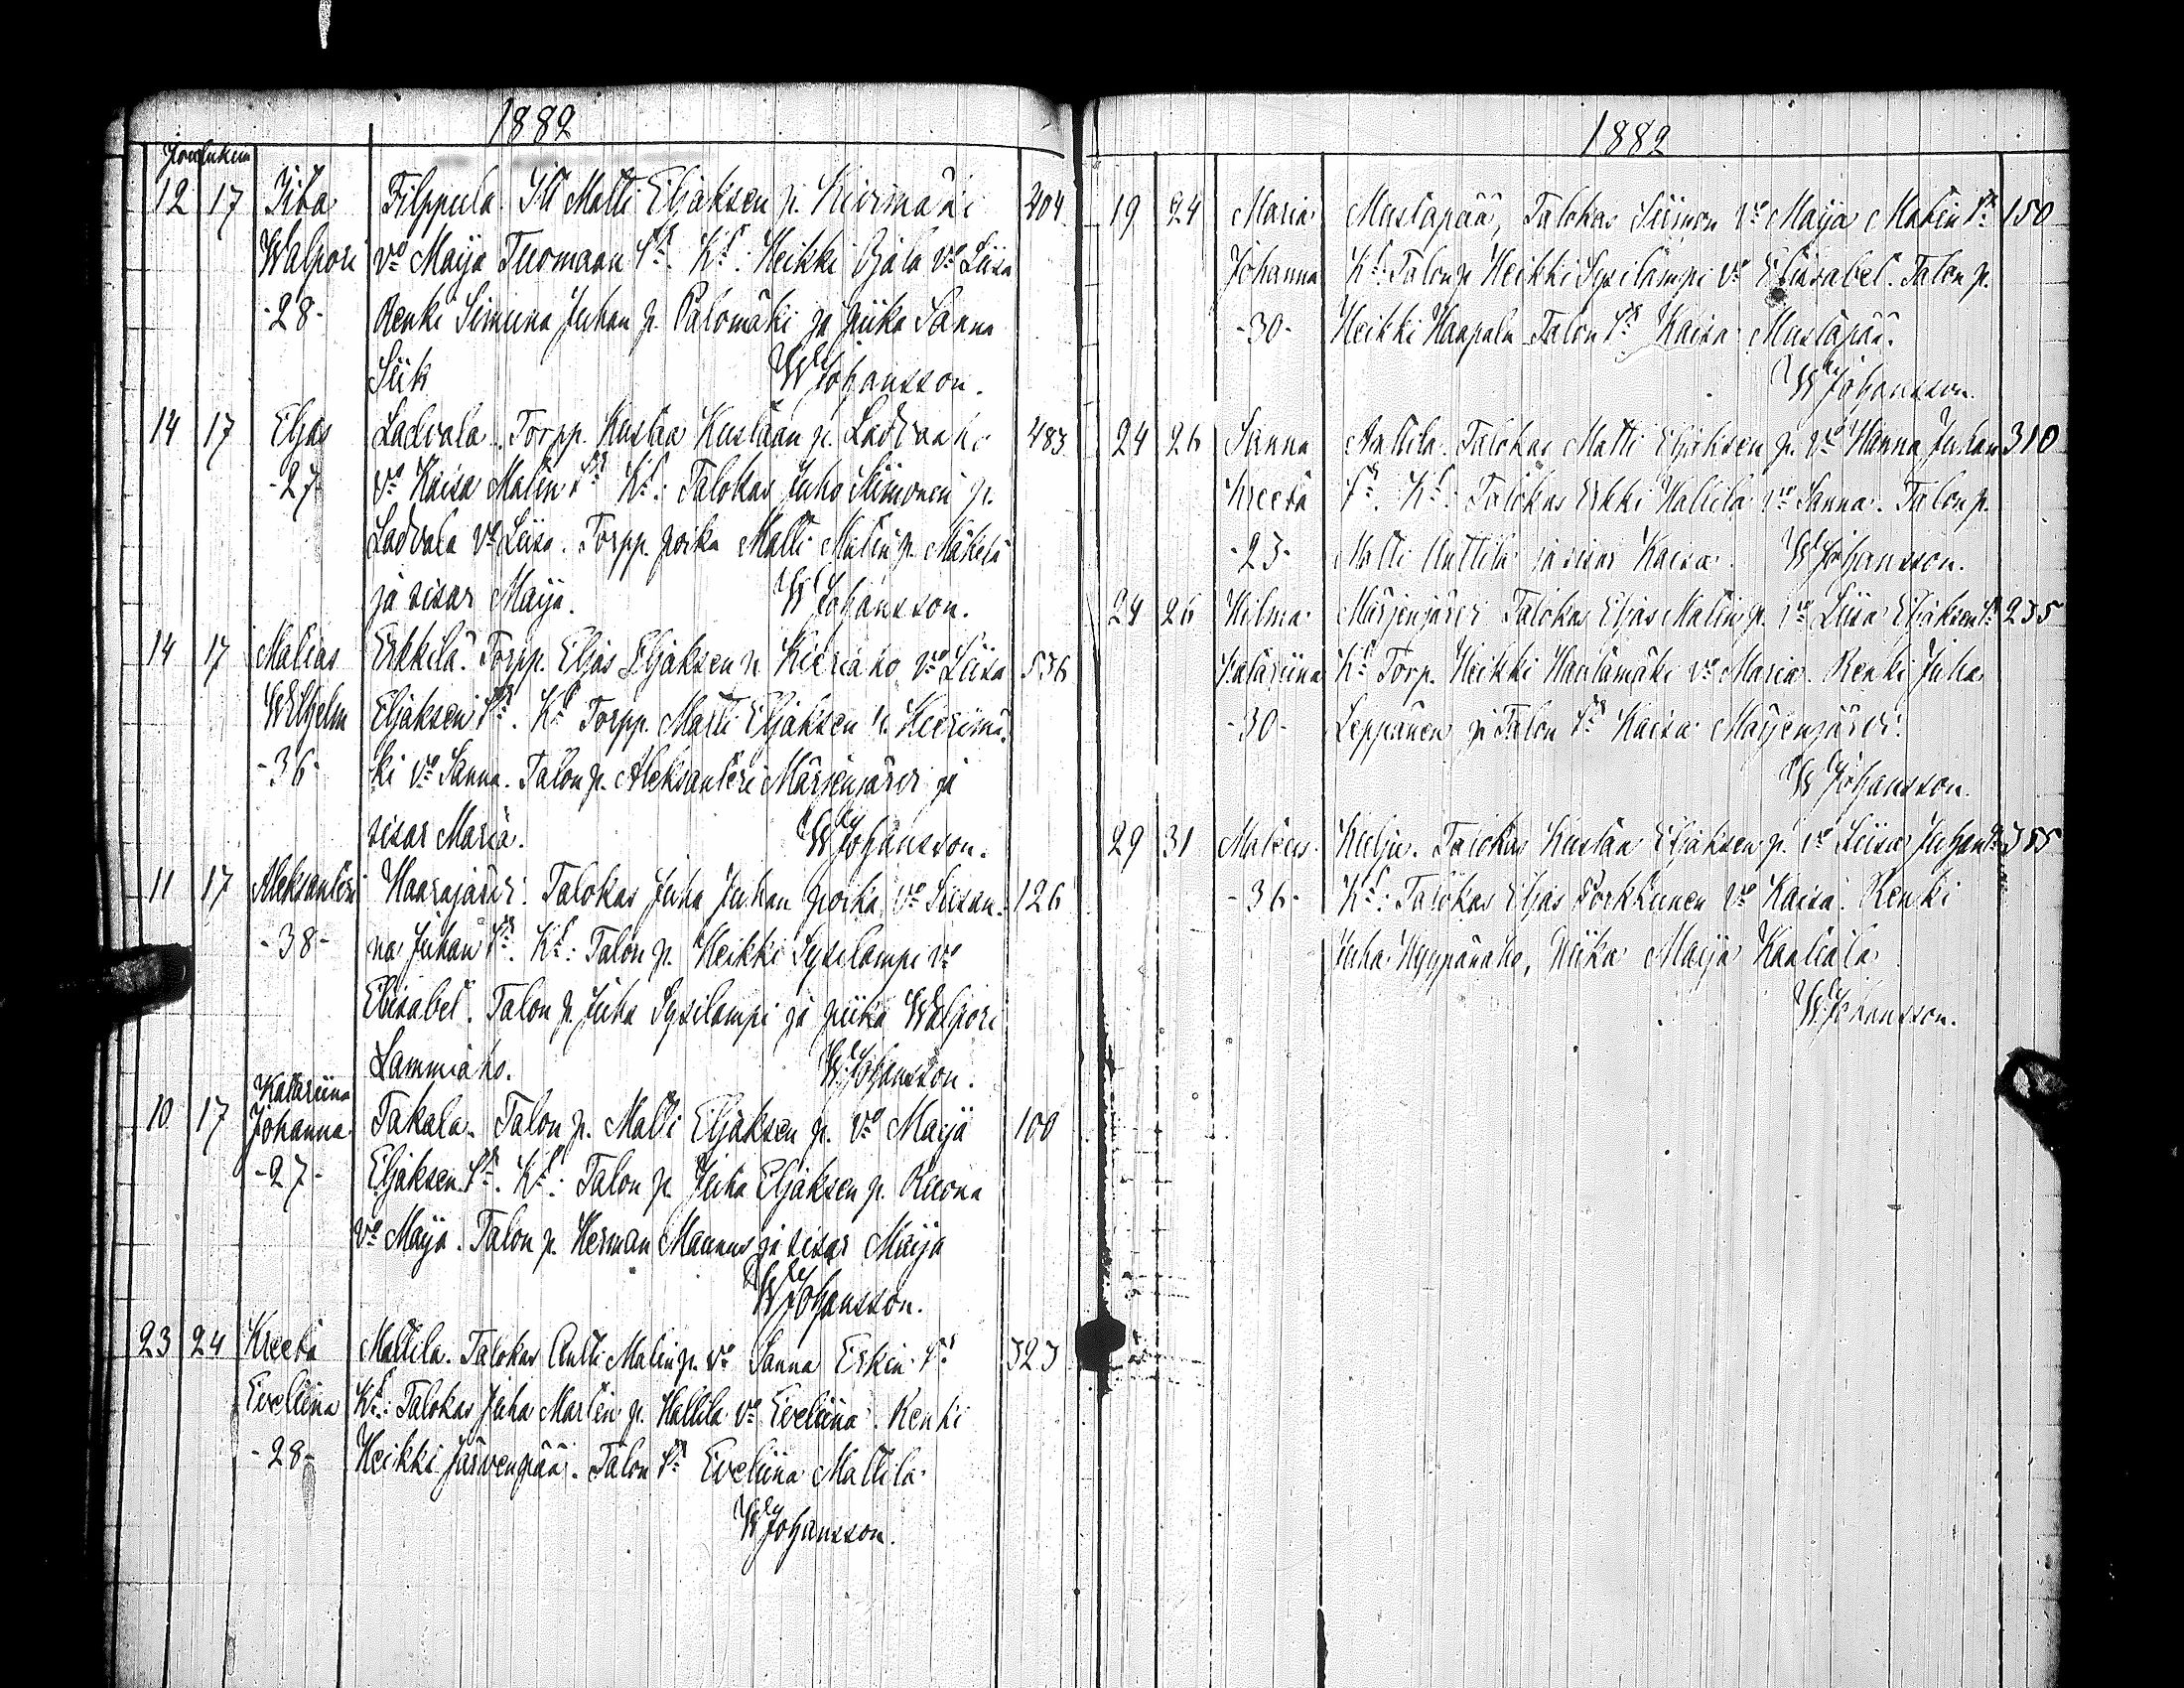 1882
Joulukuu
12 17 Iita Filppula. Itl Matti Eljaksen p. Kivimäki 404
Walpori vo Maija Tuomaan tr. Kt: Heikki Ojala vo Liisa
-28- Renki Simuna Juhan p. Palomäki ja piika Sanna
Siik WJohansson.
14 17 Eljas Ladvala. Torpp. Kustaa Kustaan p. Ladvaaho 483
-27- vo Kaisa Matin tr Kt: Talokas Juho Siimonin p.
Ladvala vo Liisa. Torpp. poika Matti Matin p. Mäkelä
ja sisar Maija. WJohansson.
14 17 Matias Erkkilä. Torpp. Eljas Eljaksen p. Kiviaho vo Liisa 536
Wilhelm Eljaksen tr. Kt Torpp. Matti Eljaksen p.
-36- ki vo Sanna. Talon p. Aleksanteri Marjenjärvi ja
sisar Maria. WJohansson.
11 17 Aleksanteri Haarajärvi. Talokas Juha Juhan poika vo Susan- 126
-38- na Juhan tr. Kt: Talon p. Heikki Sysilampi vo
Elisabet. Talon p. Juha Sysilampi ja piika Walpori
Lammiaho. WJohansson.
Katariina
10 17 Johanna Takala. Talon p. Matti Eljaksen p. vo Maija 100
-27- Eljaksen tr. Kt: Talon p. Juha Eljaksen p. Ruona
vo Maija. Talon p. Herman Maunus ja sisar Maija
WJohansson.
23 24 Kreeta Mattila. Talokas Antti Matin p. vo Sanna Erkin tr 323
Eveliina Kt: Talokas Juha Martin p. Hallila vo Eveliina. Renki
-28- Heikki Järvenpää. Talon tr Eveliina Mattila
WJohansson.
1882
19 24 Maria Mustapää, Talokas Siimon vo Maija Matin tr 150
Johanna Kt: Talon p Heikki Sysilampi vo Eliisabet. Talon p.
-30- Heikki Haapala Talon tr Kaisa Mustapää.
WJohansson.
24 26 Sanna Anttila. Talokas Matti Eljaksen p. vo Hanna Juhan 310
Kreeta tr. Kt: Talokas Erkki Hallila vo Sanna. Talon p.
-23- Matti Anttila ja sisar Kaisa. WJohansson.
24 26 Hilma Marjenjärvi Talokas Eljas Matin p. vo Liisa Eljaksen tr 235
Katariina Kt Torp. Heikki Hautamäki vo Maria. Renki Juha
-30- Leppänen ja Talon tr Kaisa Marjenjärvi.
WJohansson.
29 31 Mateus Kulju. Talokas Kustaa Eljaksen p. vo Liisa Juhan tr 355
-36- Kt: Talokas Eljas Porkkunen vo Kaisa. Renki
Juha Hyypänaho, Piika Maija Kaaliala
WJohansson.